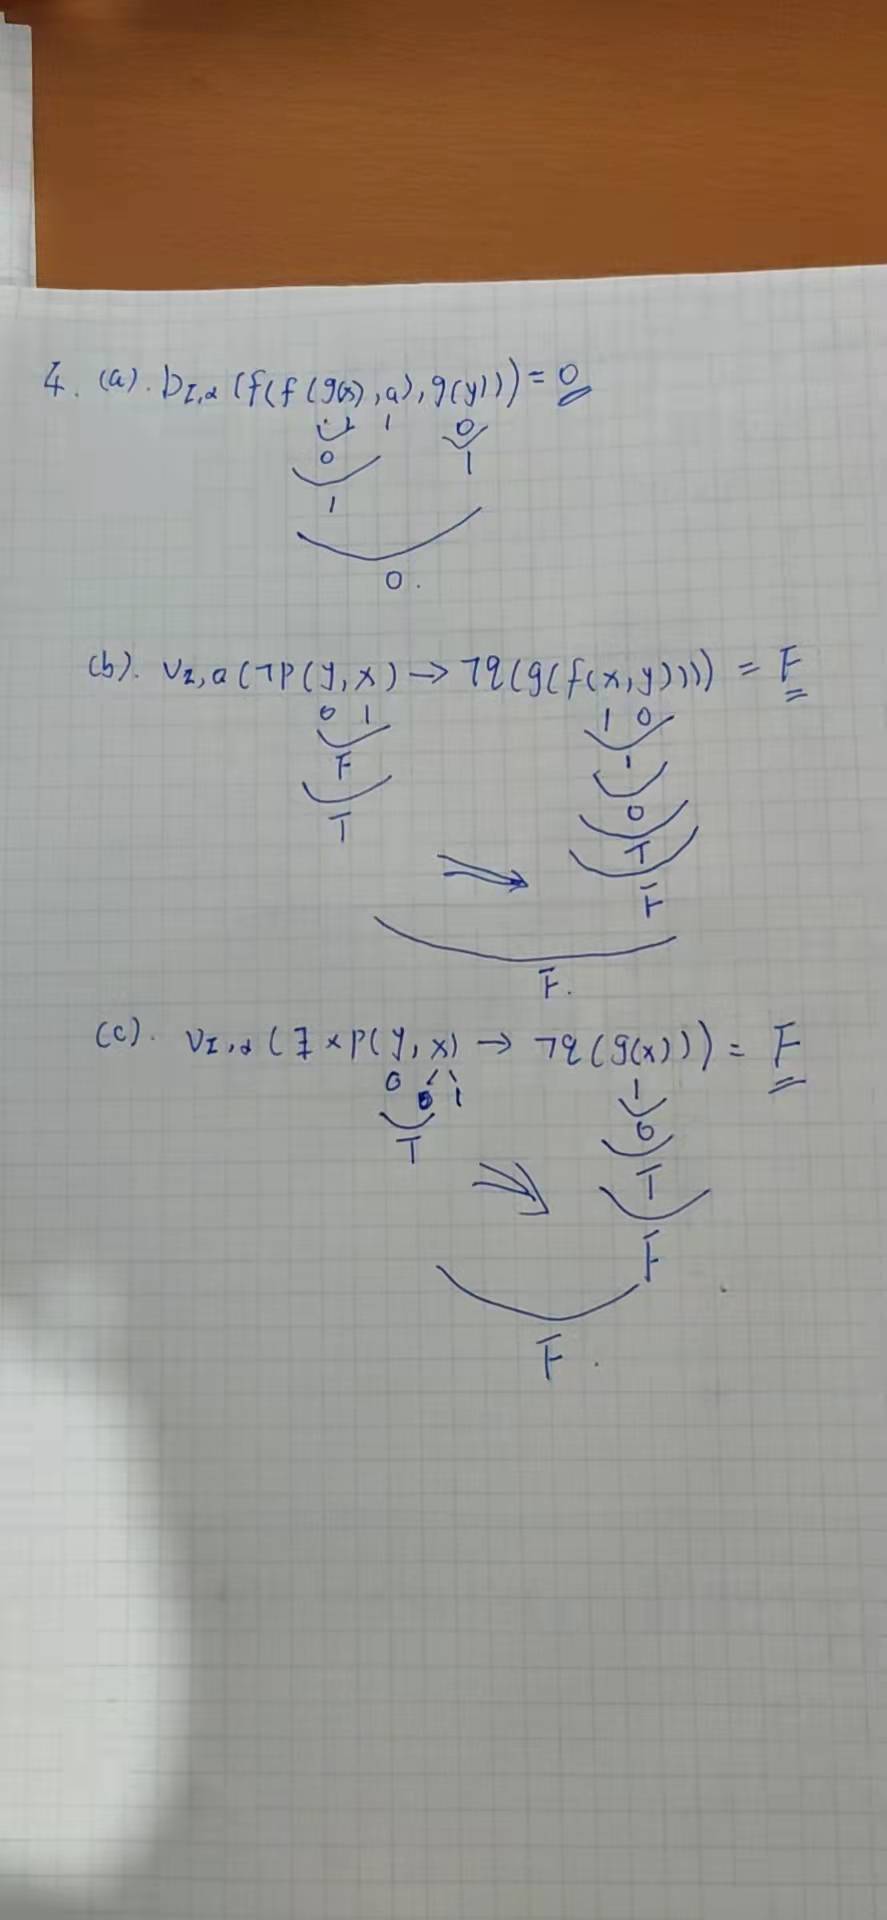 4. (a). D_I,α (f(f(g(x),a),g(y))) = 0
1 1 0
0 1
1
0.
(b). V_I,α (¬P(y,x) → ¬q(g(f(x,y)))) = F
0 1 1 0
F 1
T 0
T
⇒ F
F.
(c). V_I,α (∃xP(y,x) → ¬q(g(x))) = F
0 0 1 1
T 0
⇒ T
F
F.